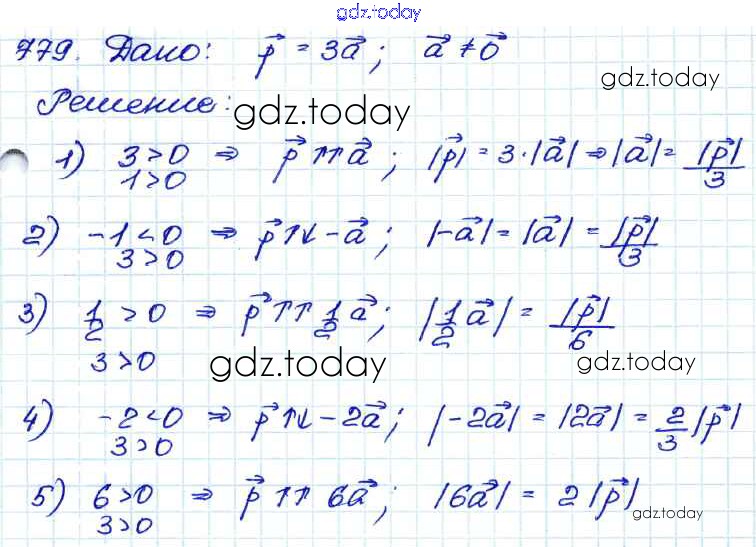 gdz.today
779. Дано: p⃗ = 3a⃗; a⃗ ≠ 0⃗
gdz.today
Решение:
gdz.today
1) 3>0 ⇒ p⃗ ↑↑ a⃗; |p⃗| = 3·|a⃗| ⇒ |a⃗| = |p⃗|/3
1>0
2) -1<0 ⇒ p⃗ ↑↓ -a⃗; |-a⃗| = |a⃗| = |p⃗|/3
3>0
3) 1/2 > 0 ⇒ p⃗ ↑↑ 1/2 a⃗; |1/2 a⃗| = |p⃗|/6
3>0
gdz.today
gdz.today
4) -2<0 ⇒ p⃗ ↑↓ -2a⃗; |-2a⃗| = |2a⃗| = 2/3 |p⃗|
3>0
5) 6>0 ⇒ p⃗ ↑↑ 6a⃗; |6a⃗| = 2|p⃗|
3>0
gdz.today